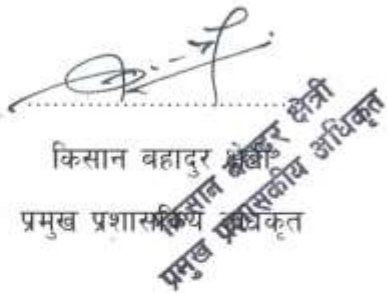 किसान बहादुर क्षेत्री
प्रमुख प्रशासकिय अधिकृत
किसान बहादुर क्षेत्री
प्रमुख प्रशासकीय अधिकृत